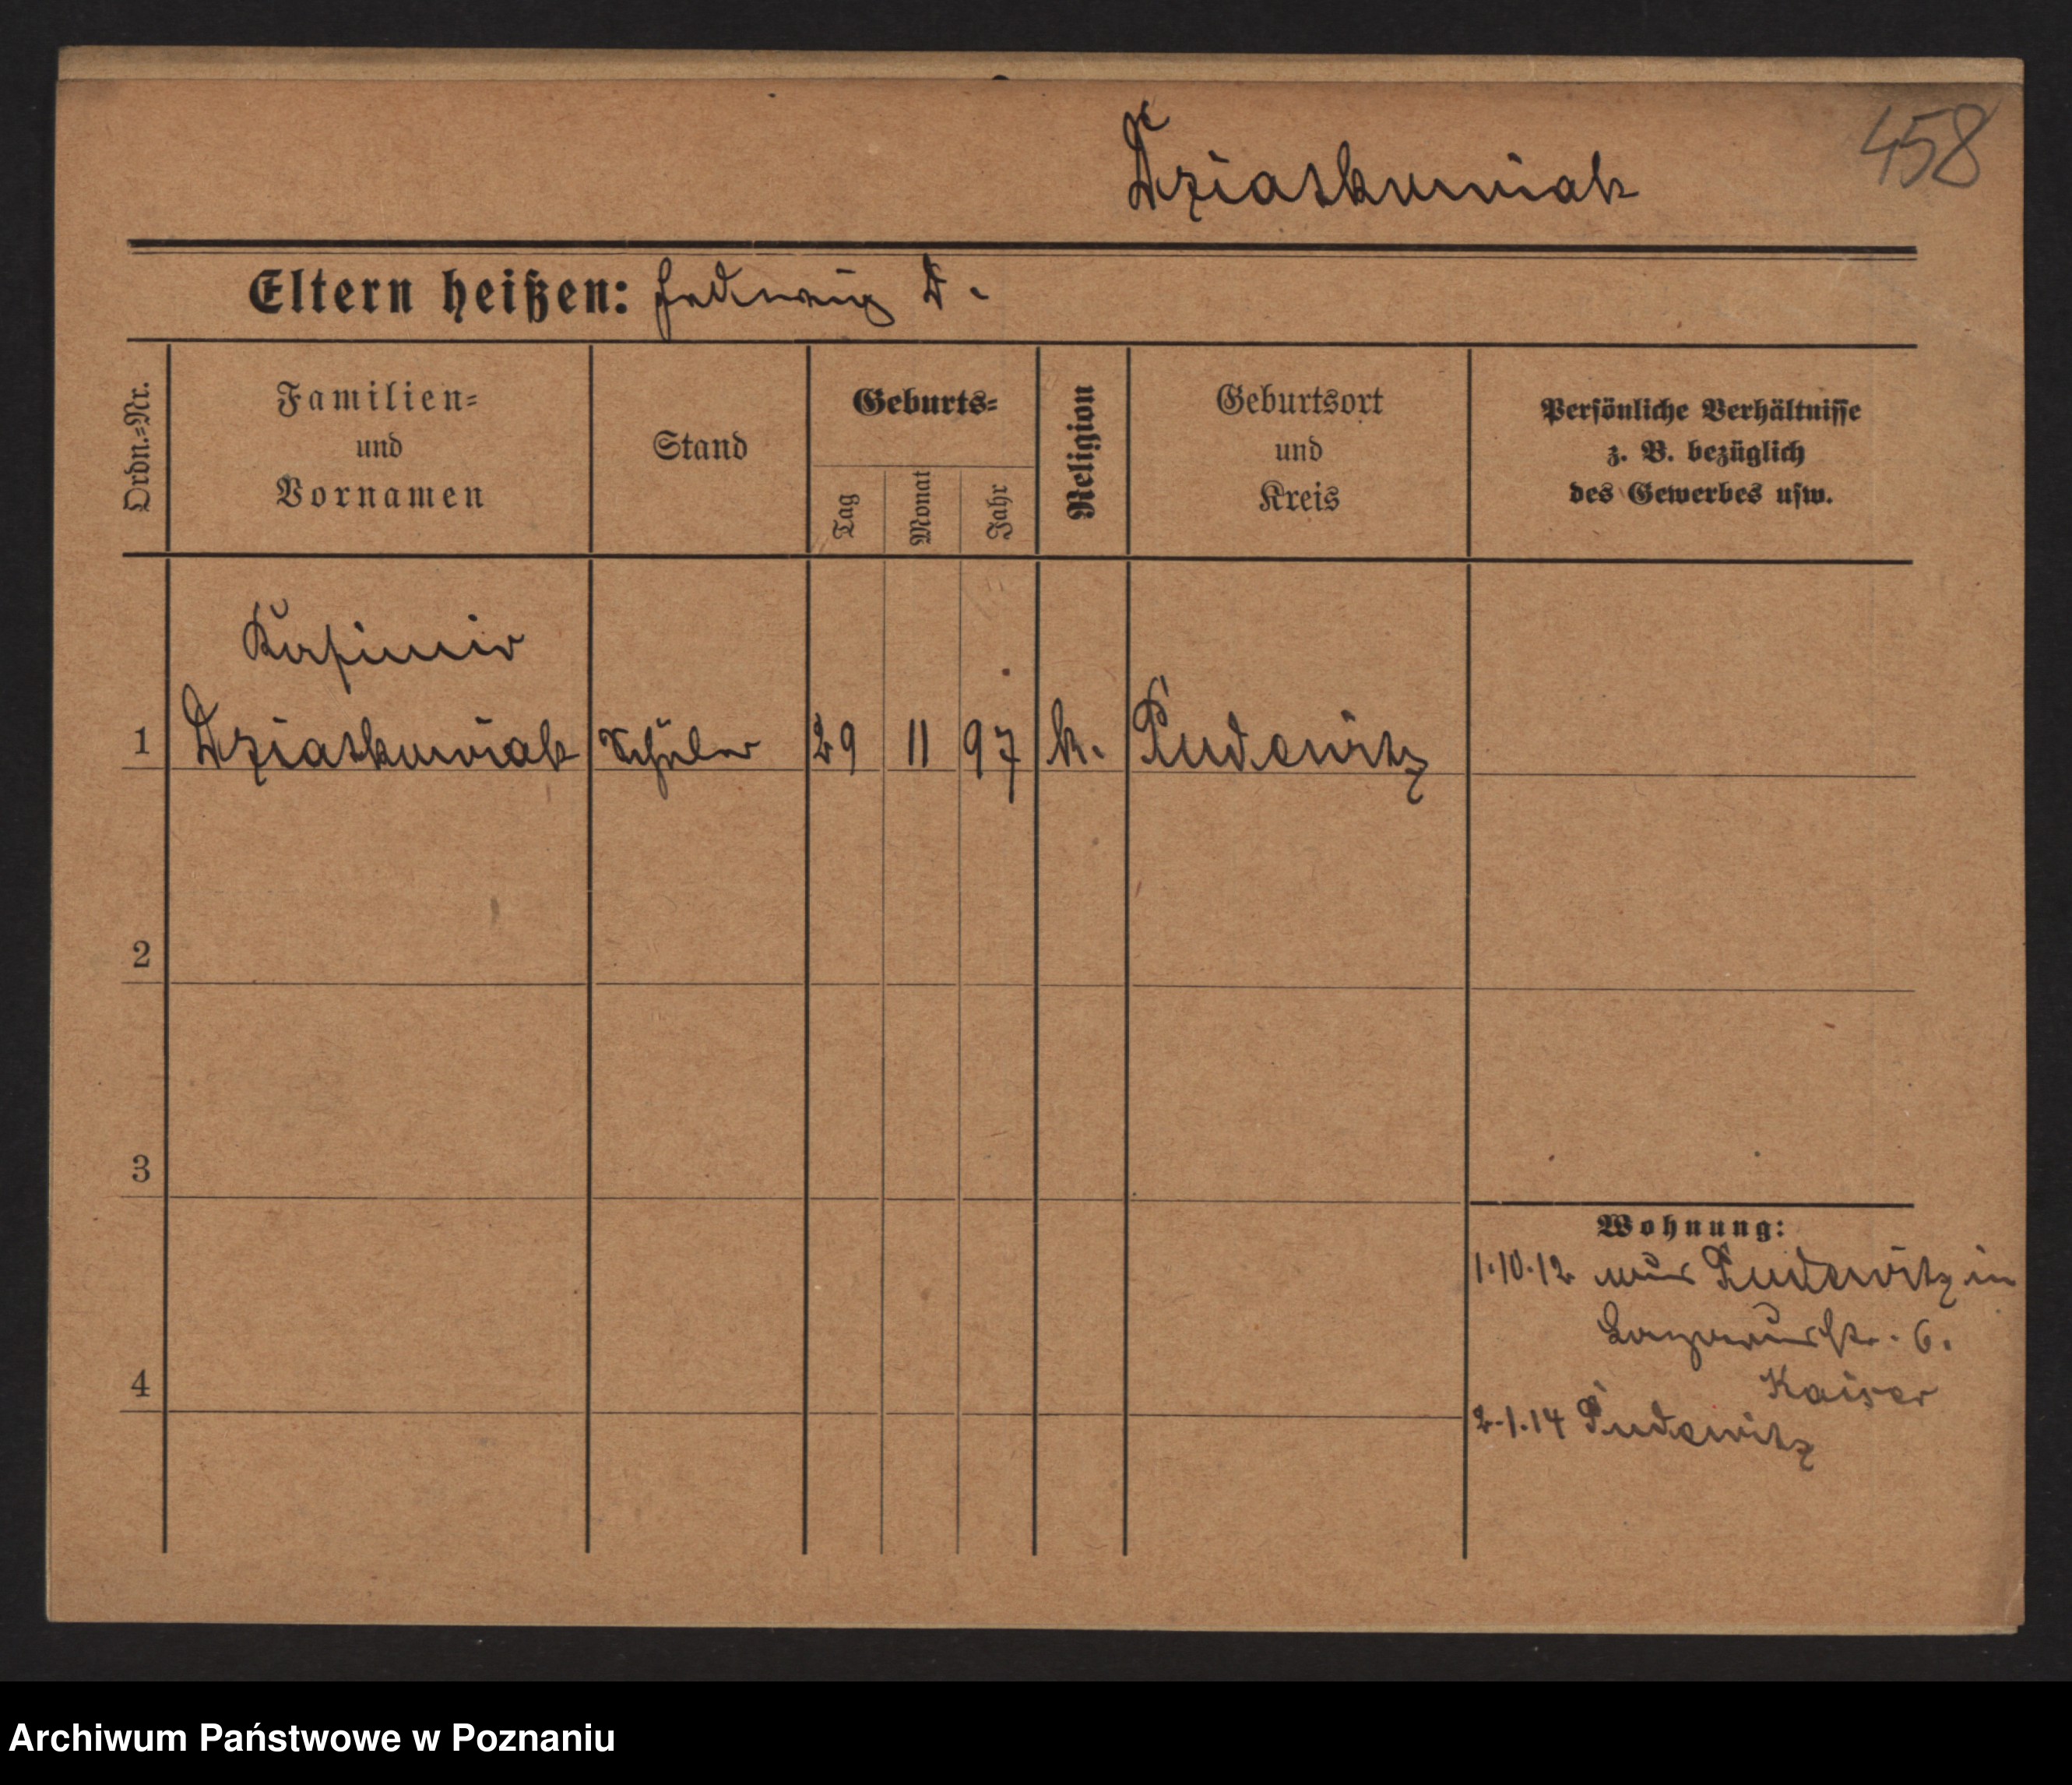 458
Dziatkowiak
Eltern heißen: Hedwig D.
Ordn.=Nr.
Familien=
und
Vornamen
Stand
Geburts=
Tag
Monat
Jahr
Religion
Geburtsort
und
Kreis
Persönliche Verhältnisse
z. B. bezüglich
des Gewerbes usw.
Kasimir
1 Dziatkowiak Schüler 29 11 97 k. Pudewitz
2
3
4
Wohnung:
1.10.12 Pudewitz in
6.
Kaiser
2.1.14 Pudewitz
Archiwum Państwowe w Poznaniu